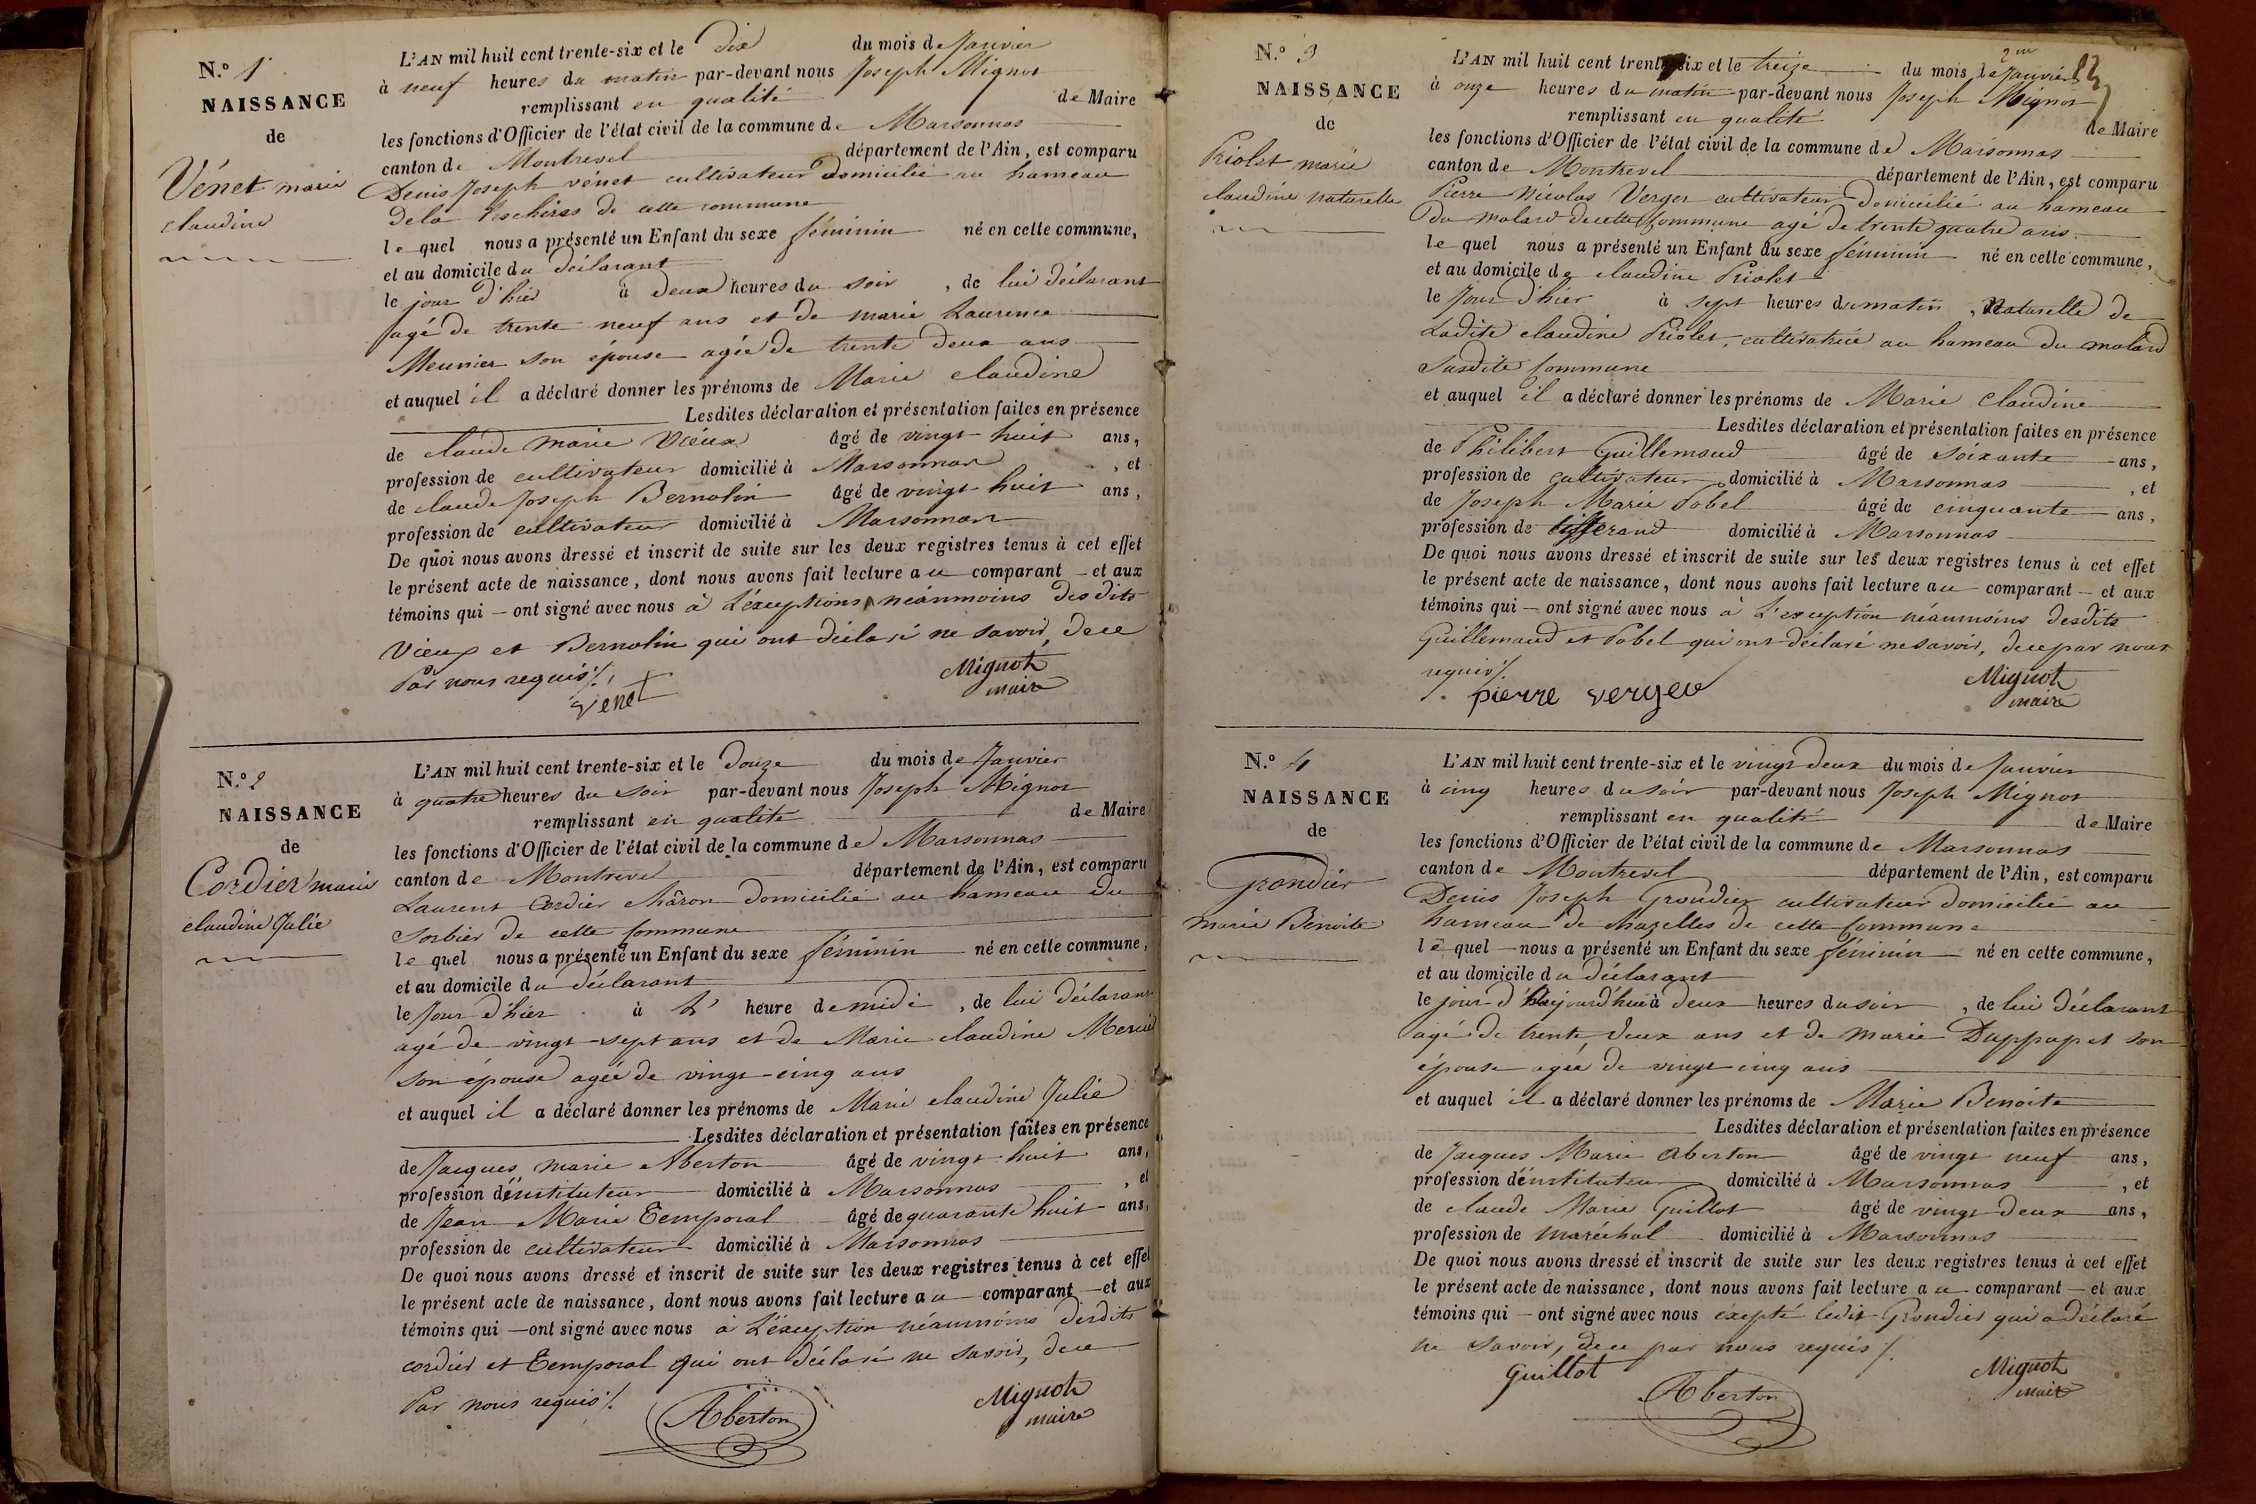 N.º 1
NAISSANCE
de
Vénet marie
claudine
L'AN mil huit cent trente-six et le dix du mois de Janvier
à neuf heures du matin par-devant nous Joseph Mignot
remplissant en qualité de Maire
les fonctions d'Officier de l'état civil de la commune de Marsonnas
canton de Montrevel département de l'Ain, est comparu
Denis Joseph vénet cultivateur domicilié au hameau
de la de cette commune
le quel nous a présenté un Enfant du sexe féminin né en cette commune,
et au domicile du déclarant
le jour d'hier à deux heures du soir, de lui déclarant
agé de trente neuf ans et de marie Laurence
Meunier son épouse agée de trente deux ans
et auquel il a déclaré donner les prénoms de Marie claudine
Lesdites déclaration et présentation faites en présence
de claude marie Vieux âgé de vingt huit ans,
profession de cultivateur domicilié à Marsonnas, et
de claude Joseph Bernolin âgé de vingt huit ans,
profession de cultivateur domicilié à Marsonnas
De quoi nous avons dressé et inscrit de suite sur les deux registres tenus à cet effet
le présent acte de naissance, dont nous avons fait lecture au comparant et aux
témoins qui ont signé avec nous à L'éxception néanmoins desdits
Vieux et Bernolin qui ont déclaré ne savoir, de ce
Par nous requis %.
Venet
Mignot
maire
N.º 2
NAISSANCE
de
Cordier marie
claudine Julie
L'AN mil huit cent trente-six et le douze du mois de Janvier
à quatre heures du soir par-devant nous Joseph Mignot
remplissant en qualité de Maire
les fonctions d'Officier de l'état civil de la commune de Marsonnas
canton de Montrevel département de l'Ain, est comparu
Laurent Cordier châron domicilié au hameau du
Sorbier de cette Commune
le quel nous a présenté un Enfant du sexe féminin né en cette commune,
et au domicile du déclarant
le Jour d'hier à L' heure de midi, de lui déclarant
agé de vingt-sept ans et de Marie claudine
son épouse agée de vingt-cinq ans
et auquel il a déclaré donner les prénoms de Marie claudine Julie
Lesdites déclaration et présentation faites en présence
de Jacques marie Aberton âgé de vingt huit ans,
profession d'énstituteur domicilié à Marsonnas, et
de Jean Marie Temporal âgé de quarante huit ans,
profession de cultivateur domicilié à Marsonnas
De quoi nous avons dressé et inscrit de suite sur les deux registres tenus à cet effet
le présent acte de naissance, dont nous avons fait lecture au comparant et aux
témoins qui ont signé avec nous à L'éxception néanmoins desdits
cordier et Temporal qui ont déclaré ne savoir, de ce
Par nous requis %.
Aberton
Mignot
maire
N.º 3
NAISSANCE
de
Priolet marie
claudine naturelle
L'AN mil huit cent trente-six et le treize du mois de Janvier
à onze heures du matin par-devant nous Joseph Mignot
remplissant en qualité de Maire
les fonctions d'Officier de l'état civil de la commune de Marsonnas
canton de Montrevel département de l'Ain, est comparu
Pierre Nicolas Verger cultivateur domicilié au hameau
du malard de cette Commune agé de trente quatre ans
le quel nous a présenté un Enfant du sexe féminin né en cette commune,
et au domicile de claudine Priolet
le Jour d'hier à sept heures du matin, Naturelle de
Ladite claudine Priolet, cultivatrice au hameau du malard
Susdite Commune
et auquel il a déclaré donner les prénoms de Marie Claudine
Lesdites déclaration et présentation faites en présence
de Philibert Guillemaud âgé de soixante ans,
profession de cultivateur domicilié à Marsonnas, et
de Joseph Marie Pobel âgé de cinquante ans,
profession de tisserand domicilié à Marsonnas
De quoi nous avons dressé et inscrit de suite sur les deux registres tenus à cet effet
le présent acte de naissance, dont nous avons fait lecture au comparant et aux
témoins qui ont signé avec nous à L'exception néanmoins desdits
Guillemaud et Pobel qui ont déclaré ne savoir, de ce par nous
requis %.
pierre verger
Mignot
maire
N.º 4
NAISSANCE
de
Grondier
marie Benoite
L'AN mil huit cent trente-six et le vingt deux du mois de Janvier
à cinq heures du soir par-devant nous Joseph Mignot
remplissant en qualité de Maire
les fonctions d'Officier de l'état civil de la commune de Marsonnas
canton de Montrevel département de l'Ain, est comparu
Denis Joseph Grondier cultivateur domicilié au
hameau de chazelles de cette Commune
le quel nous a présenté un Enfant du sexe féminin né en cette commune,
et au domicile du déclarant
le jour d'aujourd'hui à deux heures du soir, de lui déclarant
agé de trente deux ans et de marie Duppupet son
épouse agée de vingt cinq ans
et auquel il a déclaré donner les prénoms de Marie Benoite
Lesdites déclaration et présentation faites en présence
de Jacques Marie Aberton âgé de vingt neuf ans,
profession d'énstituteur domicilié à Marsonnas, et
de claude Marie Guillot âgé de vingt deux ans,
profession de maréchal domicilié à Marsonnas
De quoi nous avons dressé et inscrit de suite sur les deux registres tenus à cet effet
le présent acte de naissance, dont nous avons fait lecture au comparant et aux
témoins qui ont signé avec nous éxcepté ledit Grondier qui a déclaré
ne savoir, de ce par nous requis %.
Guillot
Aberton
Mignot
maire